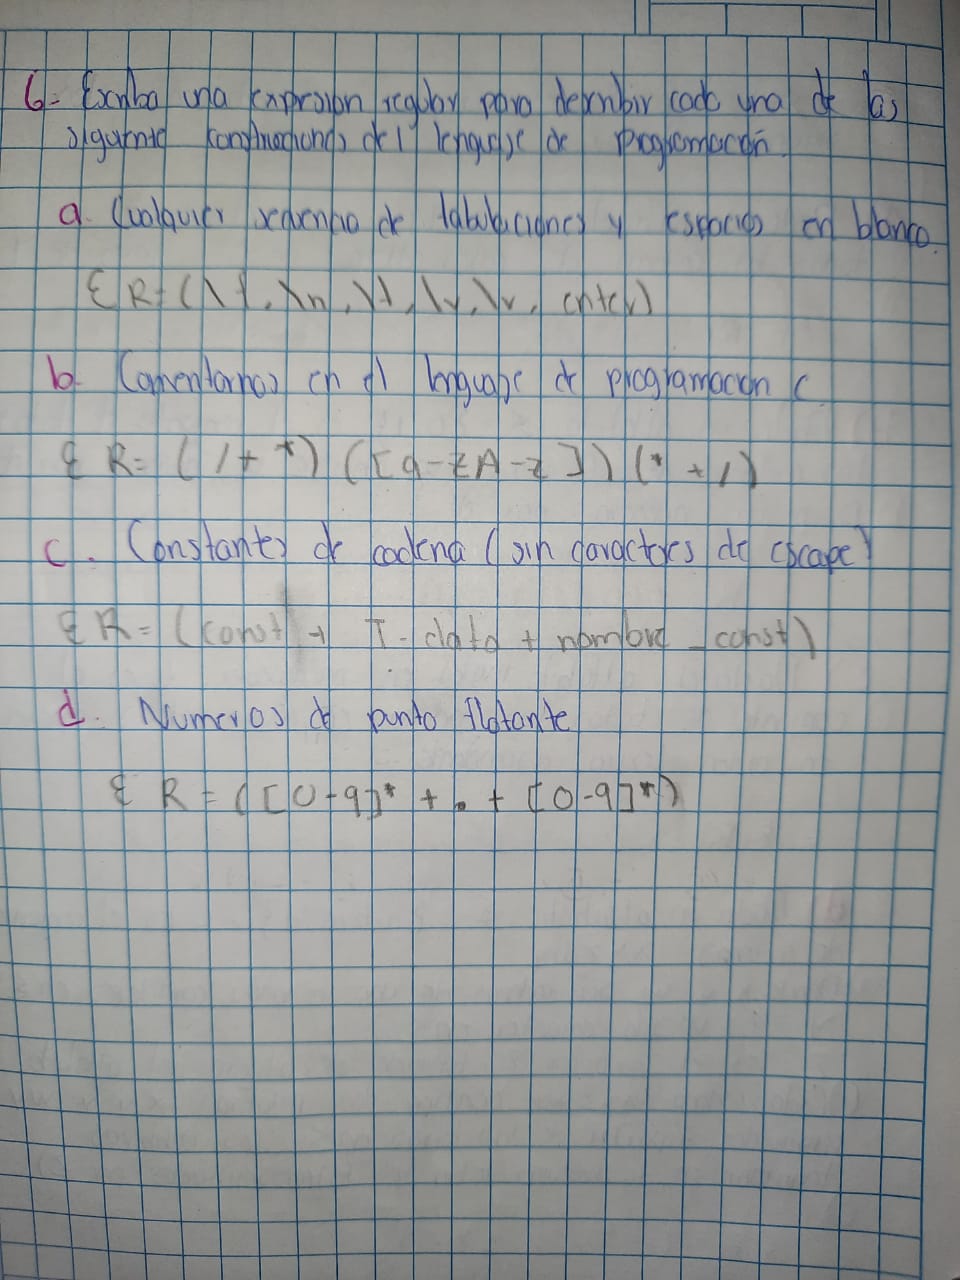 6- Escriba una expresion regular para describir cada una de las
siguiente construcciones del lenguaje de Programación.
a. Cualquier secuencia de tabulaciones y espacios en blanco.
ER= (\f, \n, \t, \v, \r, enter)
b. Comentarios en el lenguaje de programacion C
ER= (/+*) ([a-zA-z]) (*+/)
c. Constantes de cadena (sin caracteres de escape)
ER= (const + T-dato + nombre_const)
d. Numeros de punto flotante
ER = ([0-9]* + . + [0-9]*)